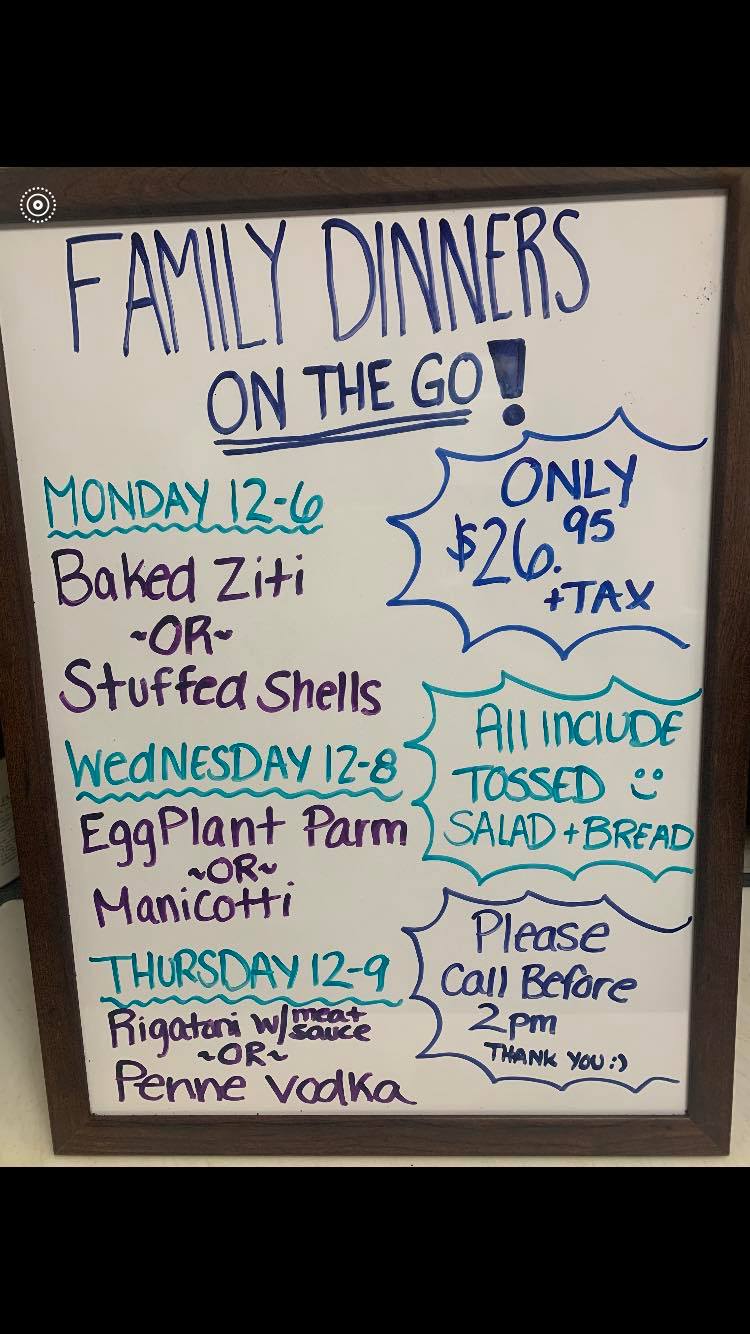 FAMILY DINNERS
ON THE GO!
MONDAY 12-6
Baked Ziti
~OR~
Stuffed Shells
WEdNESDAY 12-8
EggPlant Parm
~OR~
Manicotti
THURSDAY 12-9
Rigatoni w/ meat sauce
~OR~
Penne Vodka
ONLY
$26.95
+TAX
All INClUDE
TOSSED
SALAD + BREAD
Please
Call Before
2pm
THANK YOU :)